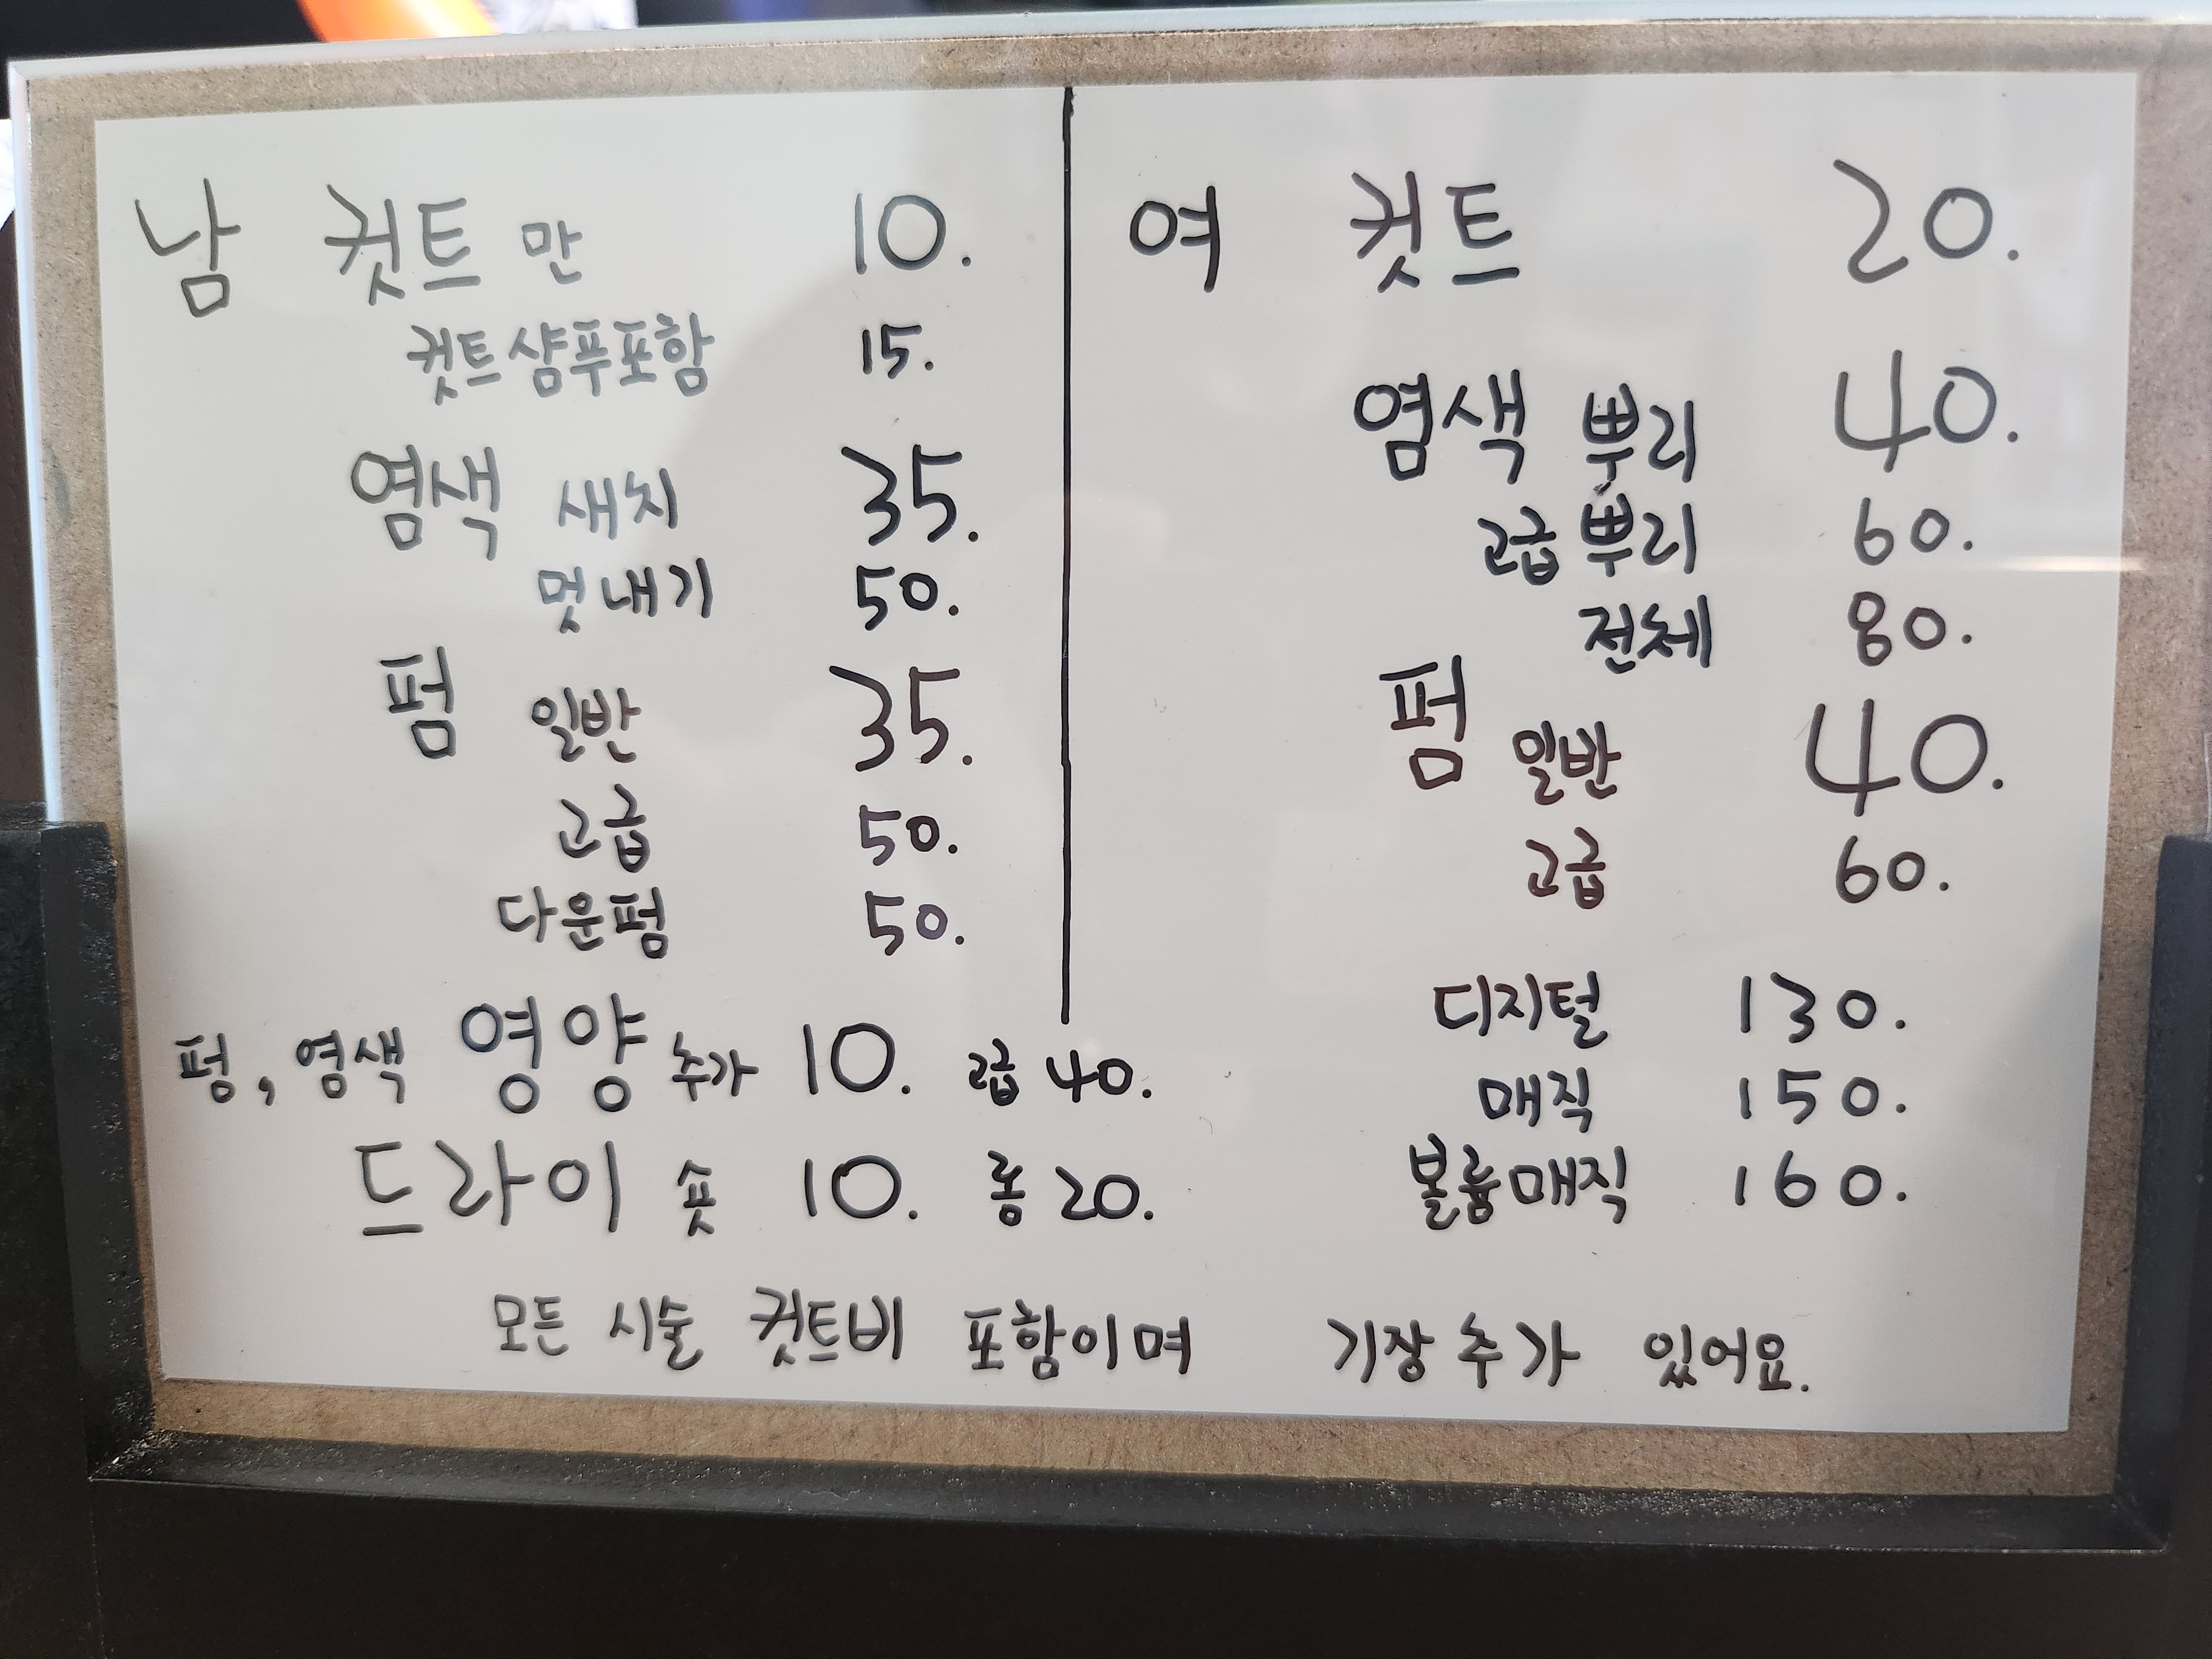 남 컷트 만 10.
컷트 샴푸포함 15.
염색 새치 35.
멋내기 50.
펌 일반 35.
고급 50.
다운펌 50.
펌, 염색 영양 추가 10. 고급 40.
드라이 숏 10. 롱 20.
여 컷트 20.
염색 뿌리 40.
고급 뿌리 60.
전체 80.
펌 일반 40.
고급 60.
디지털 130.
매직 150.
볼륨매직 160.
모든 시술 컷트비 포함이며 기장추가 있어요.